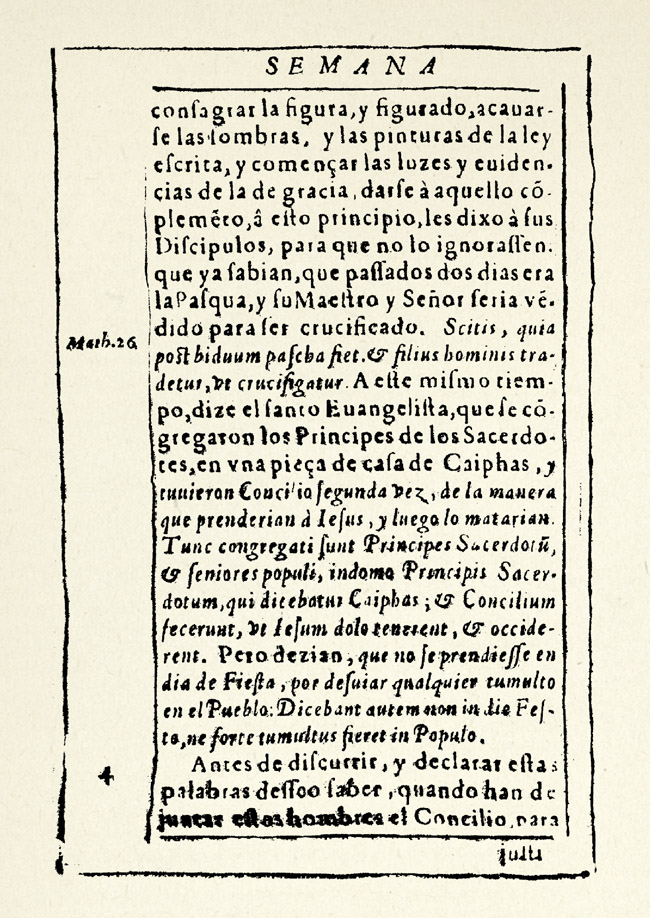 SEMANA
consagrar la figura, y figurado, acauar-
se las sombras, y las pinturas de la ley
escrita, y començar las luzes y euiden-
cias de la de gracia, darse à aquello cõ-
plemẽto, â esto principio, les dixo à sus
Discipulos, para que no lo ignorassen.
que ya sabian, que passados dos dias era
la Pasqua, y su Maestro y Señor seria vẽ-
dido para ser crucificado. Scitis, quia
Math. 26
post biduum pascha fiet. & filius hominis tra-
detur, vt crucifigatur. A este mismo tiem-
po, dize el santo Euangelista, que se cõ-
gregaron los Principes de los Sacerdo-
tes, en vna pieça de casa de Caiphas, y
tuuieron Concilio segunda vez, de la manera
que prenderian à Iesus, y luego lo matarian.
Tunc congregati sunt Principes Sacerdotũ,
& seniores populi, in domo Principis Sacer-
dotum, qui dicebatur Caiphas; & Concilium
fecerunt, vt Iesum dolo tenerent, & occide-
rent. Pero dezian, que no se prendiesse en
dia de Fiesta, por desuiar qualquier tumulto
en el Pueblo: Dicebant autem non in die Fes-
to, ne forte tumultus fieret in Populo.
Antes de discurrir, y declarar estas
4
palabras desseo saber, quando han de
juntar estos hombres el Concilio, para
justi